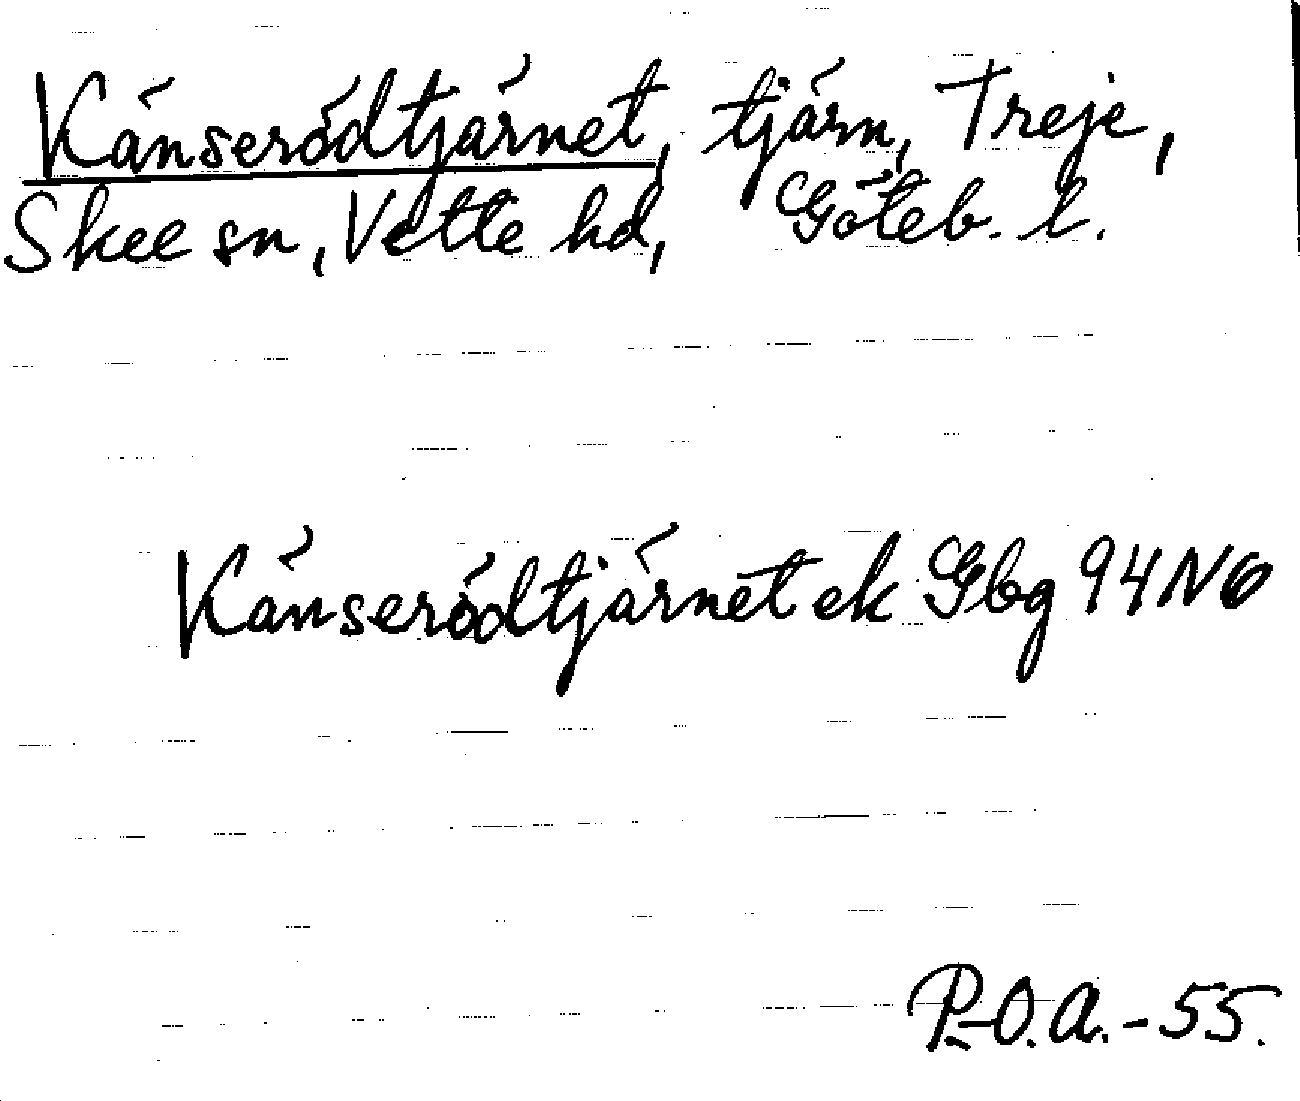 Känserödtjärnet, tjärn, Treje,
Skee sn, Vette hd, Göteb. l.
Känserödtjärnet ek Gbg 94 NO
P-O.A.-55.